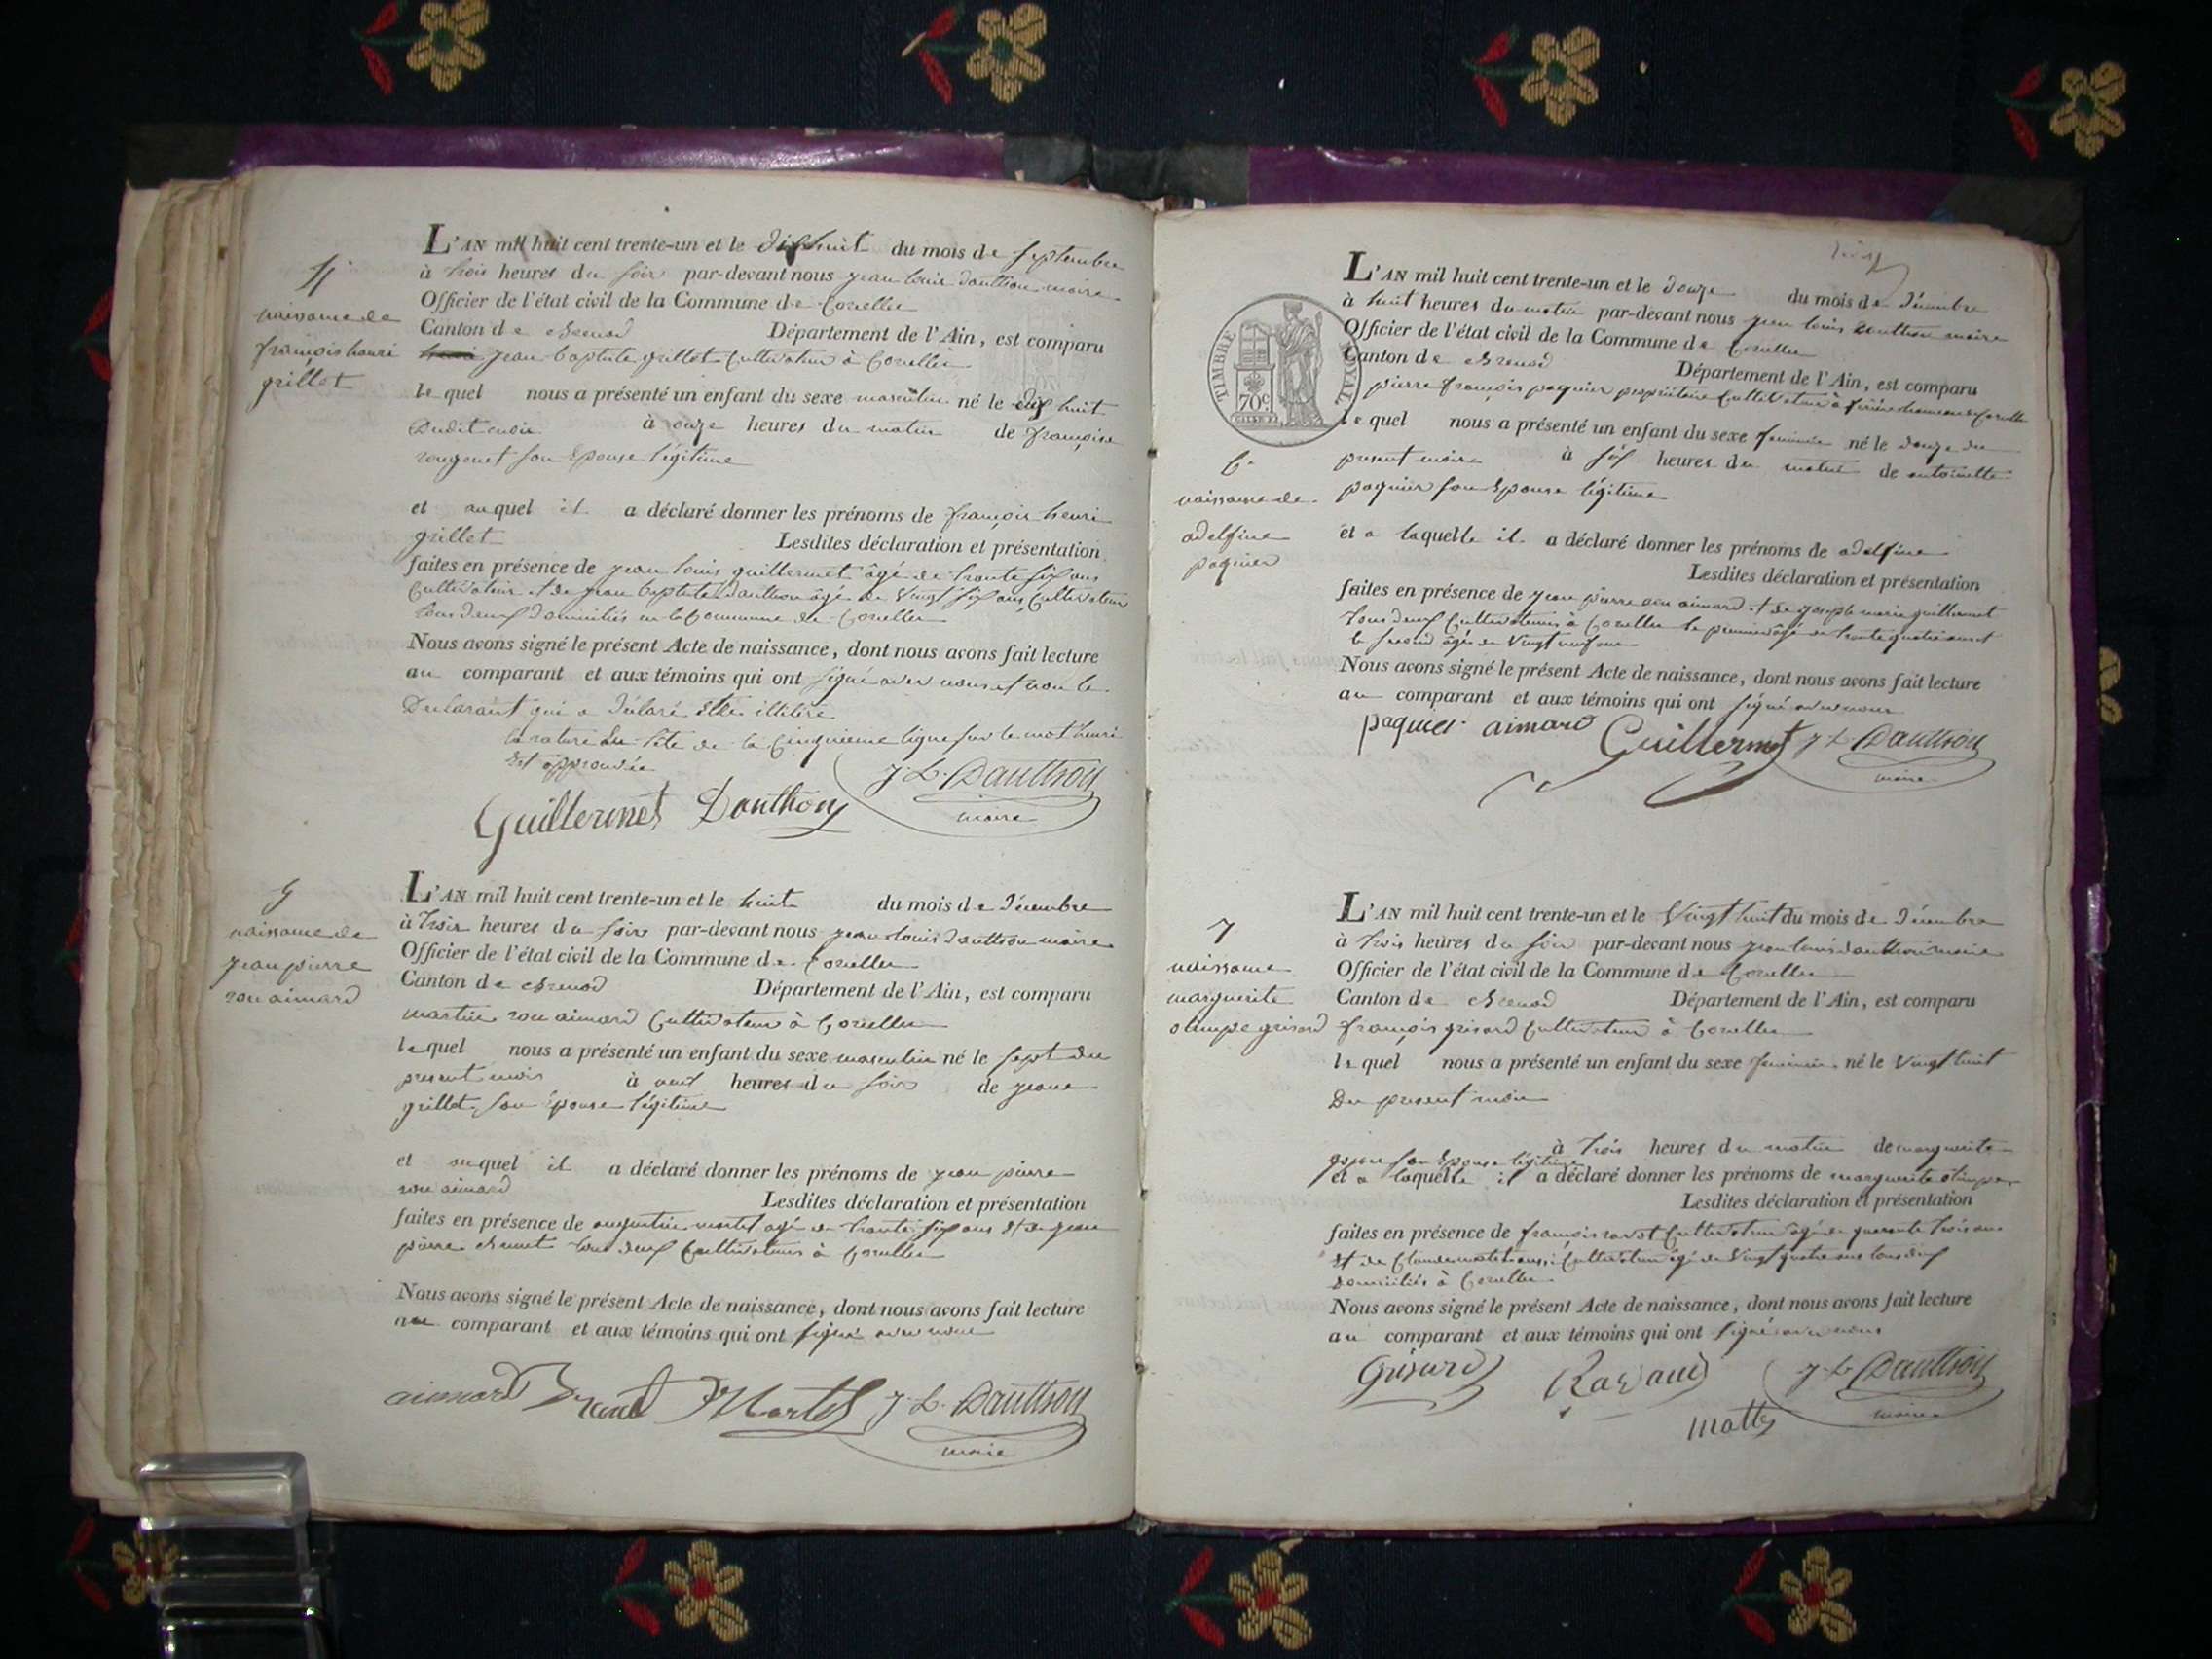 4
naissance de
françois henri
grillet
L'AN mil huit cent trente-un et le dix huit du mois de septembre
à trois heures du soir par-devant nous jean louis dauthon maire
Officier de l'état civil de la Commune de Corcelles
Canton de Brenod Département de l'Ain, est comparu
jean baptiste grillet Cultivateur à Corcelles
lequel nous a présenté un enfant du sexe masculin né le dix huit
dudit mois à onze heures du matin de françoise
rougemet son Epouse légitime
et auquel il a déclaré donner les prénoms de françois henri
grillet Lesdites déclaration et présentation
faites en présence de jean louis guillermet âgé de trente six ans
Cultivateur et de jean baptiste dauthon âgé de Vingt six ans Cultivateur
tous deux domiciliés en la Commune de Corcelles
Nous avons signé le présent Acte de naissance, dont nous avons fait lecture
au comparant et aux témoins qui ont signé avec nous et non le
Declarant qui a déclaré Etre illitéré
la rature en tête de la Cinquieme ligne sur le mot henri
Est approuvée
Guillermet Dauthon J. L. Dauthon
maire
5
naissance de
jean pierre
aimard
L'AN mil huit cent trente-un et le huit du mois de décembre
à trois heures du soir par-devant nous jean louis dauthon maire
Officier de l'état civil de la Commune de Corcelles
Canton de Brenod Département de l'Ain, est comparu
martin aimard Cultivateur à Corcelles
lequel nous a présenté un enfant du sexe masculin né le sept du
present mois à neuf heures du soir de jeane
grillet son épouse légitime
et auquel il a déclaré donner les prénoms de jean pierre
aimard Lesdites déclaration et présentation
faites en présence de augustin martel agé de trente six ans et de jean
pierre tous deux Cultivateurs à Corcelles
Nous avons signé le présent Acte de naissance, dont nous avons fait lecture
au comparant et aux témoins qui ont signé avec nous
aimard Martel J. L. Dauthon
maire
TIMBRE ROYAL
70c
6e
naissance de
adelfine
paquier
L'AN mil huit cent trente-un et le douze du mois de décembre
à huit heures du matin par-devant nous jean louis dauthon maire
Officier de l'état civil de la Commune de Corcelles
Canton de Brenod Département de l'Ain, est comparu
pierre françois paquier propriétaire Cultivateur à hameau de Corcelles
lequel nous a présenté un enfant du sexe feminin né le douze du
present mois à six heures du matin de antoinette
paquier son Epouse légitime
et a laquelle il a déclaré donner les prénoms de adelfine
Lesdites déclaration et présentation
faites en présence de jean pierre aimard et de joseph marie guillermet
tous deux Cultivateurs à Corcelles le premier âgé de trente quatre ans et
le second âgé de Vingt neuf ans
Nous avons signé le présent Acte de naissance, dont nous avons fait lecture
au comparant et aux témoins qui ont signé avec nous
paquier aimard Guillermet J L Dauthon
maire
7
naissance
marguerite
olimpe grisard
L'AN mil huit cent trente-un et le Vingt huit du mois de décembre
à trois heures du soir par-devant nous jean louis dauthon maire
Officier de l'état civil de la Commune de Corcelles
Canton de Brenod Département de l'Ain, est comparu
françois grisard Cultivateur à Corcelles
lequel nous a présenté un enfant du sexe feminin né le Vingt huit
Du present mois
à trois heures du matin de marguerite
son Epouse légitime
et a laquelle il a déclaré donner les prénoms de marguerite olimpe
Lesdites déclaration et présentation
faites en présence de françois Cultivateur âgé de quarante trois ans
et de Claude Cultivateur âgé de Vingt quatre ans tous deux
domiciliés à Corcelles
Nous avons signé le présent Acte de naissance, dont nous avons fait lecture
au comparant et aux témoins qui ont signé avec nous
Grisard Ravaud J L Dauthon
maire